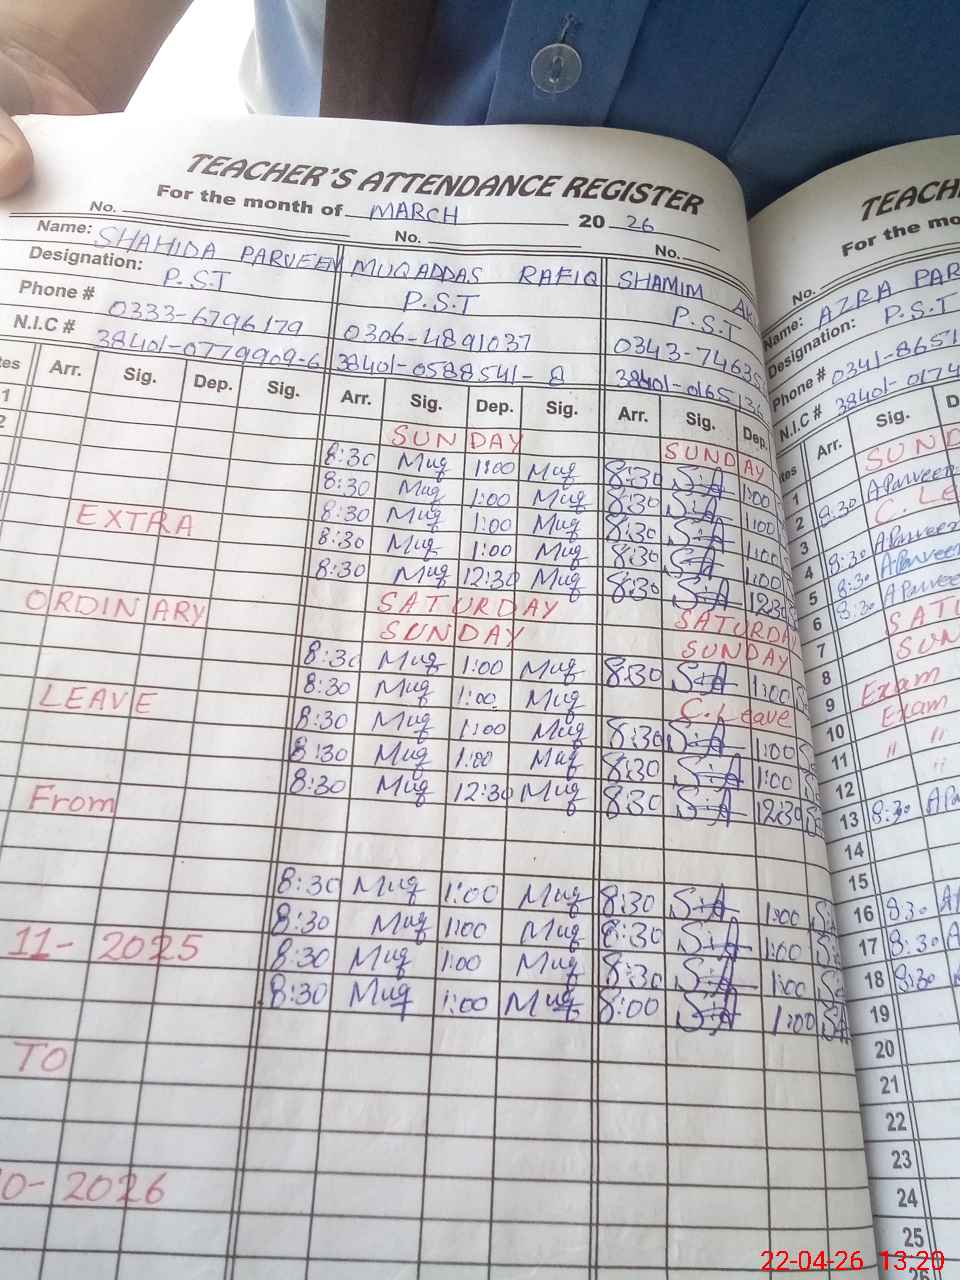 TEACHER'S ATTENDANCE REGISTER
For the month of MARCH 20 26
No. No. No.
Name: SHAHIDA PARVEEN MUQADDAS RAFIQ SHAMIM
Designation: P.S.T P.S.T P.S.T
Phone # 0333-6796179 0306-4891037 0343-7463
N.I.C # 38401-0779909-6 38401-0588541-8 38401-0165
Arr. Sig. Dep. Sig. Arr. Sig. Dep. Sig. Arr. Sig. Dep.
1 SUNDAY SUNDAY
2 8:30 Muq 1:00 Muq 8:30 S.A 1:00
8:30 Muq 1:00 Muq 8:30 S.A 1:00
EXTRA 8:30 Muq 1:00 Muq 8:30 S.A 1:00
8:30 Muq 1:00 Muq 8:30 S.A 1:00
8:30 Muq 12:30 Muq 8:30 S.A 12:30
ORDINARY SATURDAY SATURDAY
SUNDAY SUNDAY
8:30 Muq 1:00 Muq 8:30 S.A 1:00
LEAVE 8:30 Muq 1:00 Muq C.Leave
8:30 Muq 1:00 Muq 8:30 S.A 1:00
8:30 Muq 1:00 Muq 8:30 S.A 1:00
From 8:30 Muq 12:30 Muq 8:30 S.A 12:30
8:30 Muq 1:00 Muq 8:30 S.A 1:00
8:30 Muq 1:00 Muq 8:30 S.A 1:00
11-2025 8:30 Muq 1:00 Muq 8:30 S.A 1:00
8:30 Muq 1:00 Muq 8:00 S.A 1:00 SA
TO
0-2026
TEACH
For the mo
No.
Name: AZRA PAR
Designation: P.S.T
Phone # 0341-8651
N.I.C # 38401-0174
Arr. Sig. D
1 SUND
2 8:30 A Parveen
3 C. Le
4 8:30 A Parveen
5 8:30 A Parveen
6 8:30 A Parvee
7 SATU
8 SUN
9 Exam
10 Exam
11 " "
12 "
13 8:30 A Pa
14
15
16 8:30 A
17 8:30 A
18 8:30 A
19
20
21
22
23
24
25
26
22-04-26 13,20